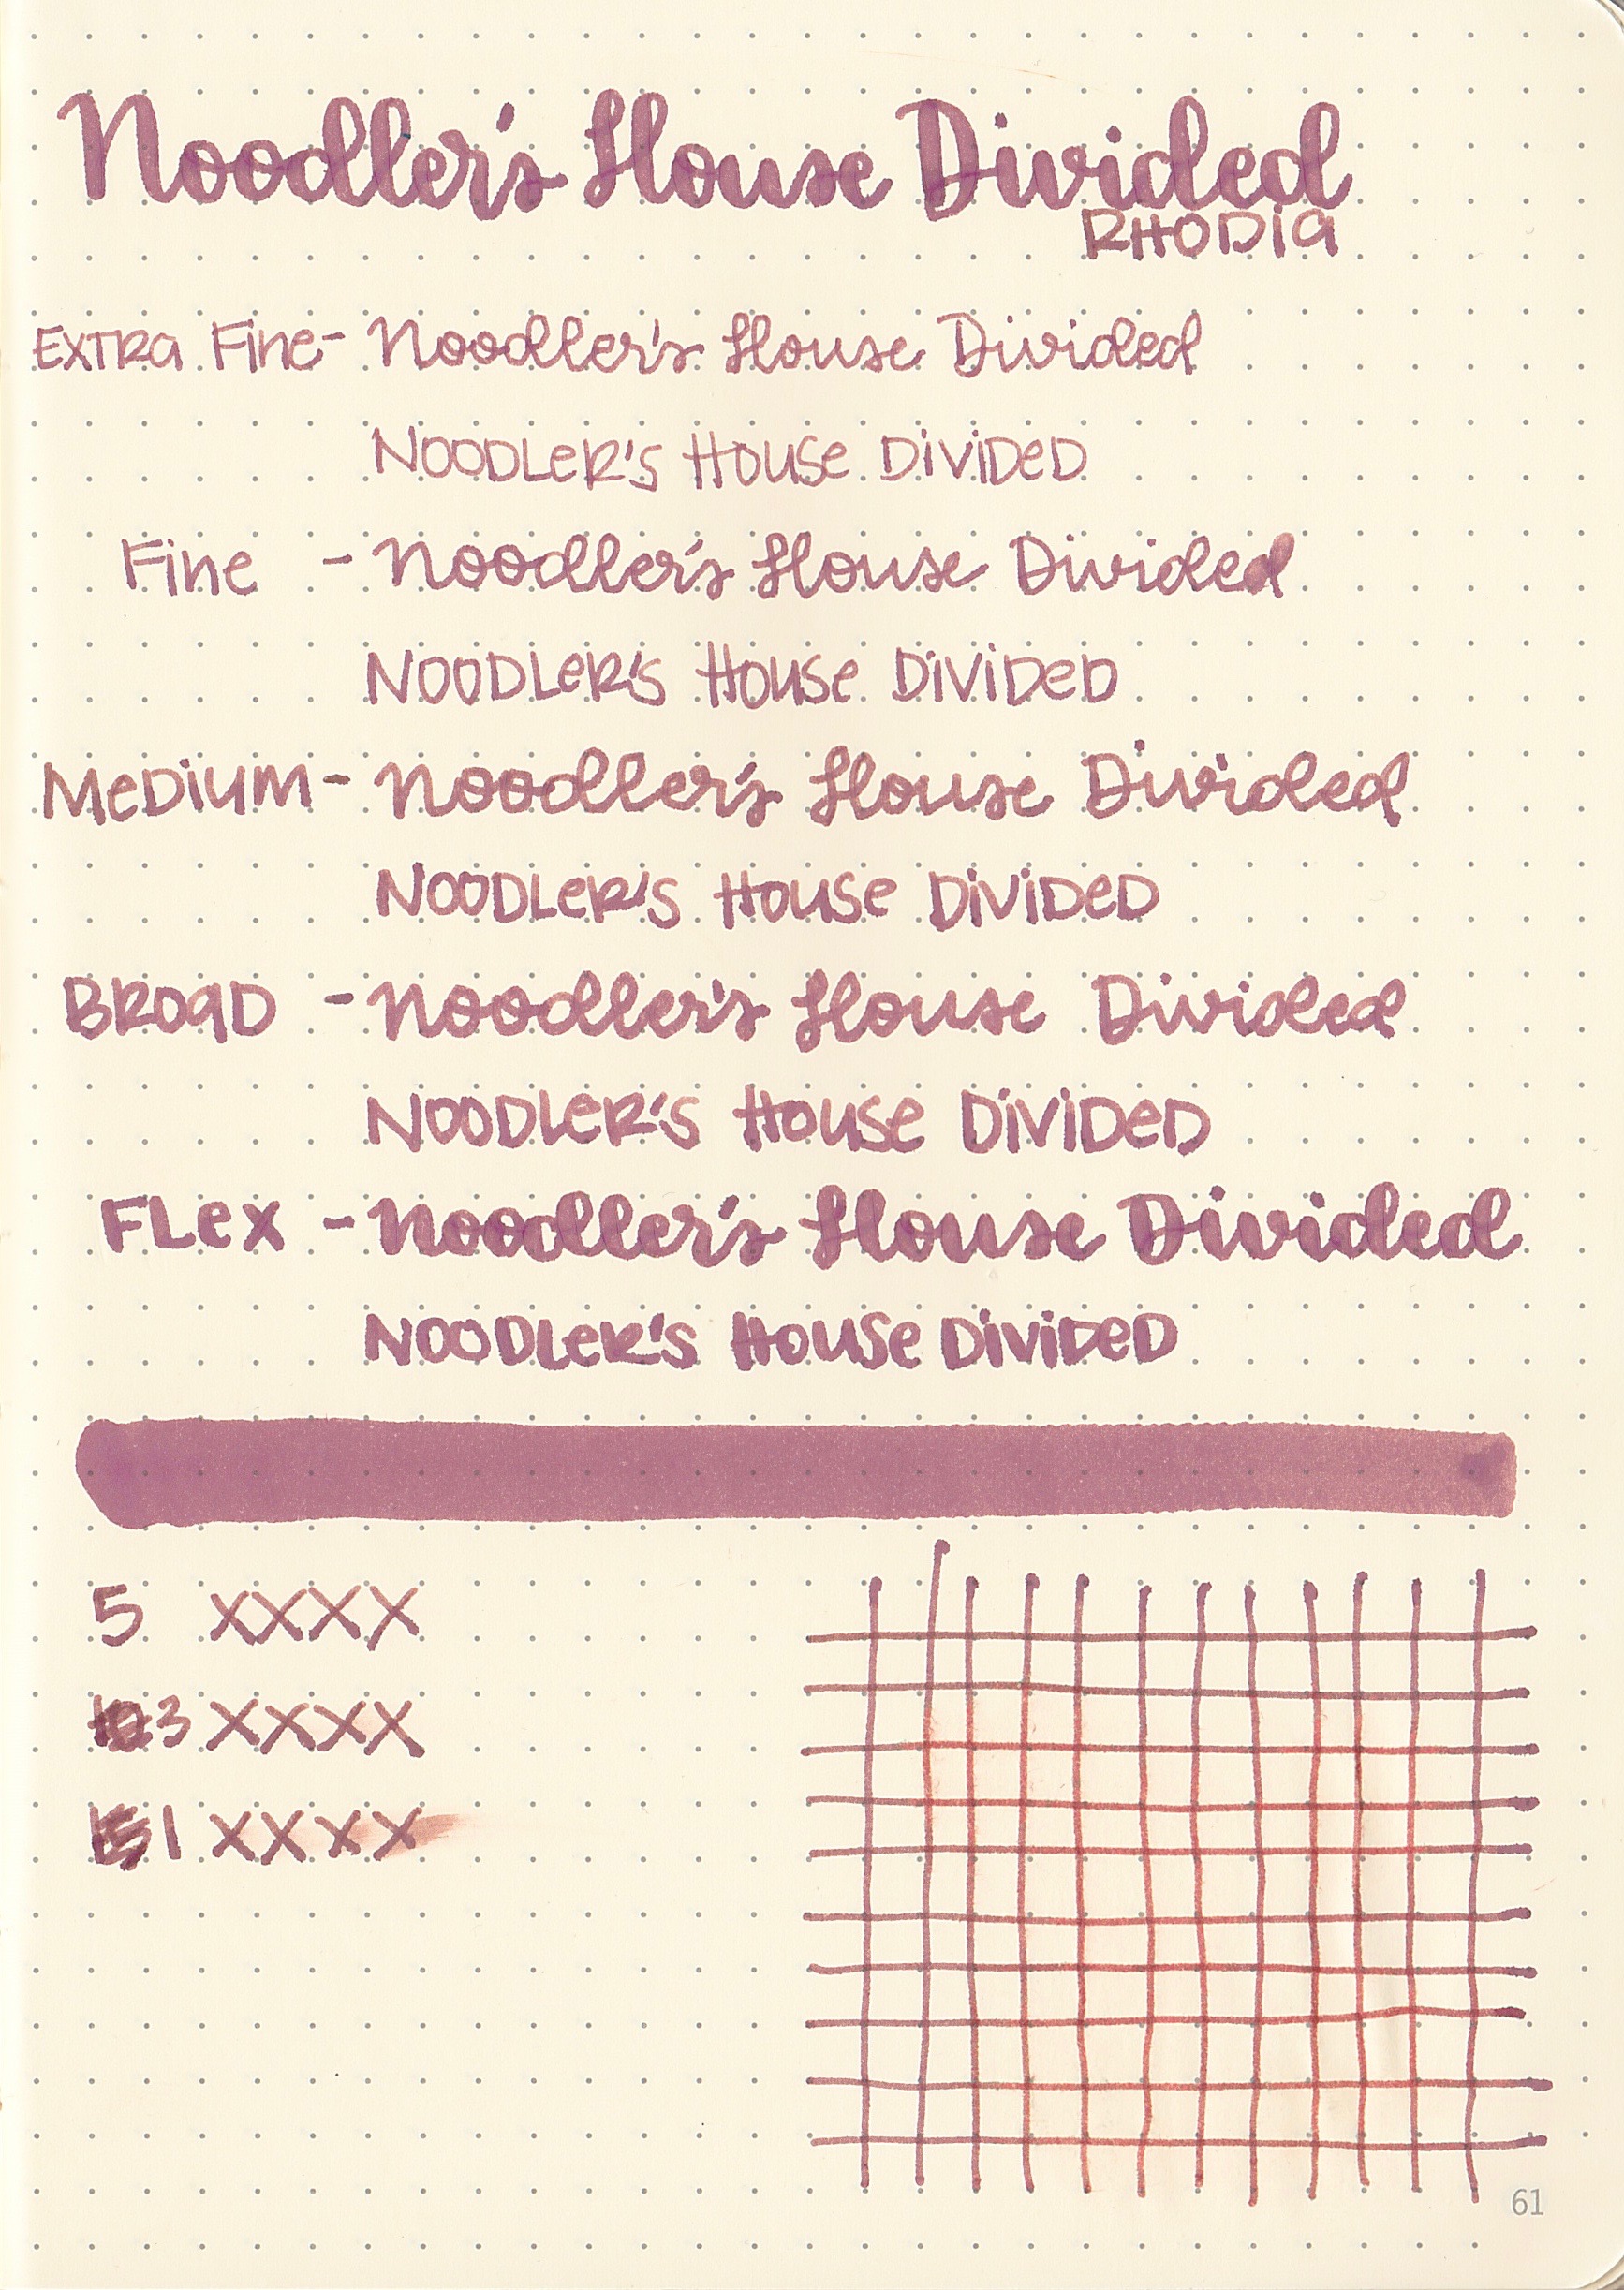 Noodler's House Divided
RHODIA
Extra Fine - Noodler's House Divided
Noodler's House Divided
Fine - Noodler's House Divided
Noodler's House Divided
Medium - Noodler's House Divided
Noodler's House Divided
Broad - Noodler's House Divided
Noodler's House Divided
Flex - Noodler's House Divided
Noodler's House Divided
5 XXXX
3 XXXX
1 XXXX
61